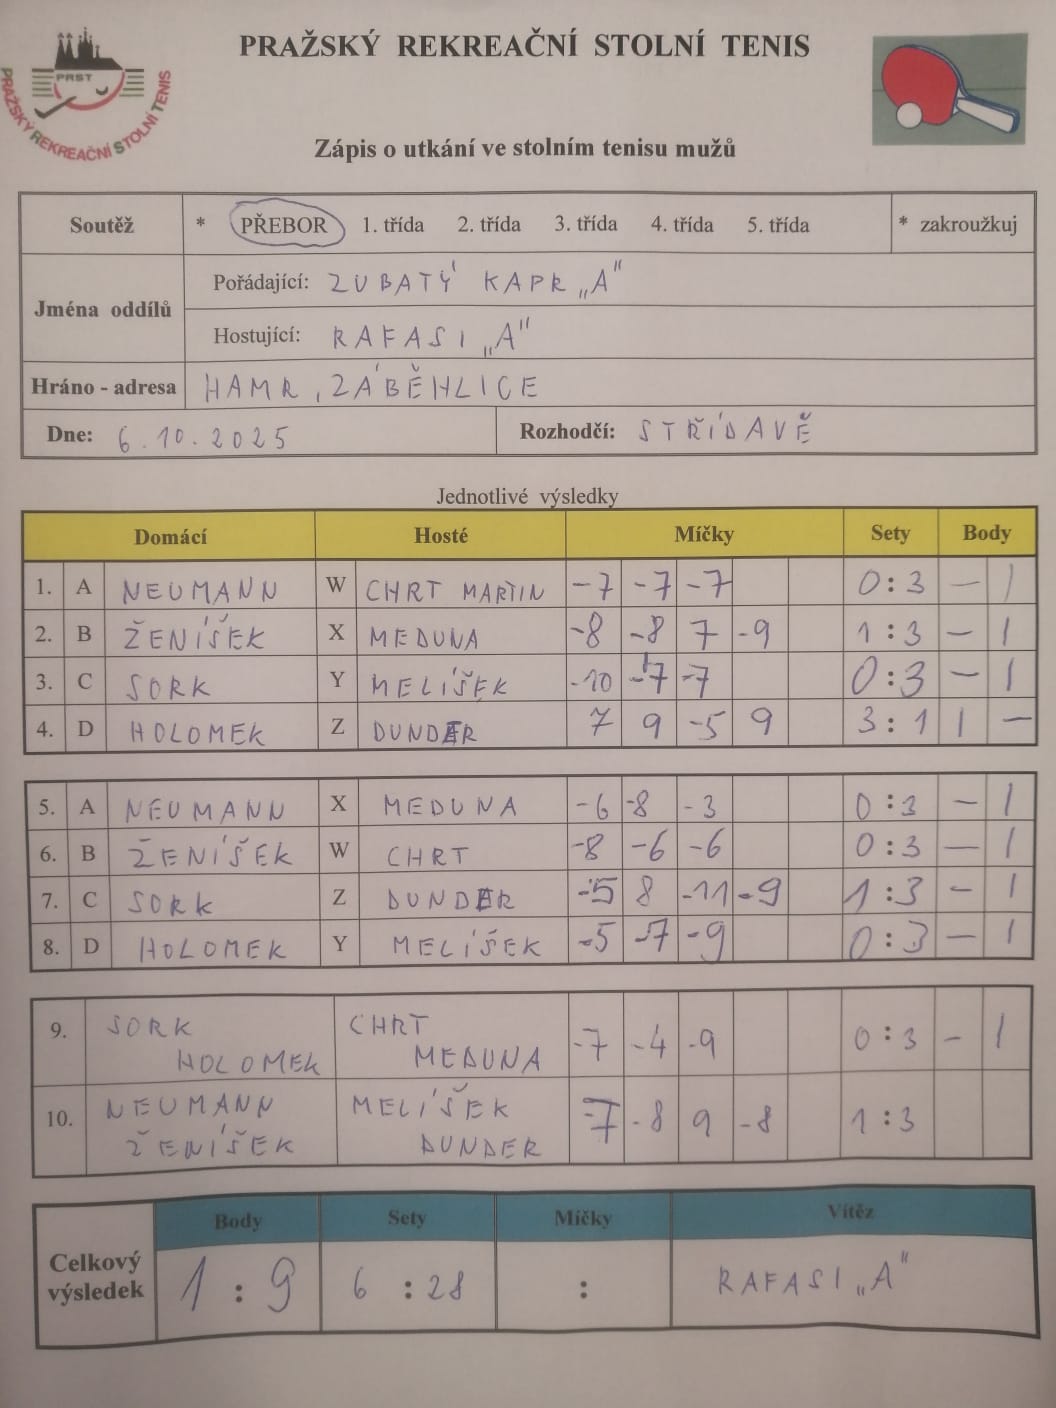 PRAŽSKÝ REKREAČNÍ STOLNÍ TENIS
PRST
PRAŽSKÝ REKREAČNÍ STOLNÍ TENIS
Zápis o utkání ve stolním tenisu mužů
Soutěž * PŘEBOR 1. třída 2. třída 3. třída 4. třída 5. třída * zakroužkuj
Jména oddílů
Pořádající: ZUBATÝ KAPR „A"
Hostující: RAFASI „A"
Hráno - adresa HAMR, ZÁBĚHLICE
Dne: 6.10.2025 Rozhodčí: STŘÍDAVĚ
Jednotlivé výsledky
Domácí Hosté Míčky Sety Body
1. A NEUMANN W CHRT MARTIN -7 -7 -7 0:3 — 1
2. B ŽENÍŠEK X MEDUNA -8 -8 7 -9 1:3 — 1
3. C SORK Y MELÍŠEK -10 -7 -7 0:3 — 1
4. D HOLOMEK Z DUNDER 7 9 -5 9 3:1 1 —
5. A NEUMANN X MEDUNA -6 -8 -3 0:3 — 1
6. B ŽENÍŠEK W CHRT -8 -6 -6 0:3 — 1
7. C SORK Z DUNDER -5 8 -11 -9 1:3 — 1
8. D HOLOMEK Y MELÍŠEK -5 -7 -9 0:3 — 1
9. SORK CHRT -7 -4 -9 0:3 - 1
HOLOMEK MEDUNA
10. NEUMANN MELÍŠEK -7 -8 9 -8 1:3
ŽENÍŠEK DUNDER
Celkový výsledek
Body Sety Míčky Vítěz
1:9 6:28 : RAFASI „A"